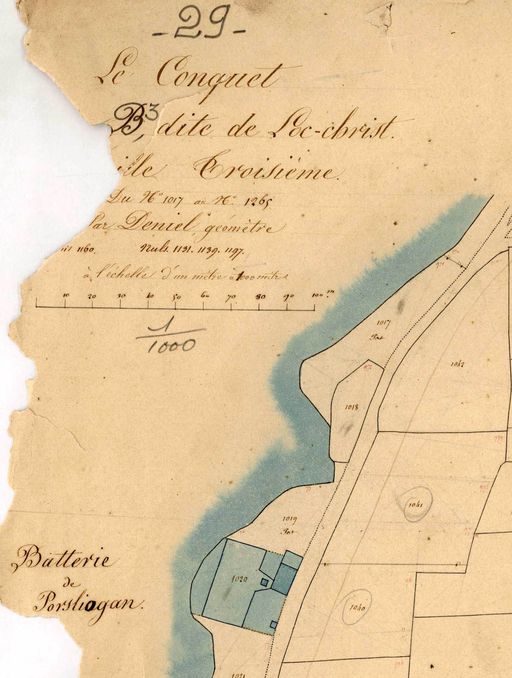 - 29 -
Le Conquet
B, 3 dite de Loc-christ.
ille Troisième.
Du N° 1017 au N° 1265
Par Deniel, géomètre
1160. Nuls. 1131. 1139. 1197.
à l'échelle d'un mètre à 1000 mtrs
10 20 30 40 50 60 70 80 90 100 m
1/1000
1017
1062
1018
1061
1019
1020
1060
1021
Batterie
de
Porsliogan.